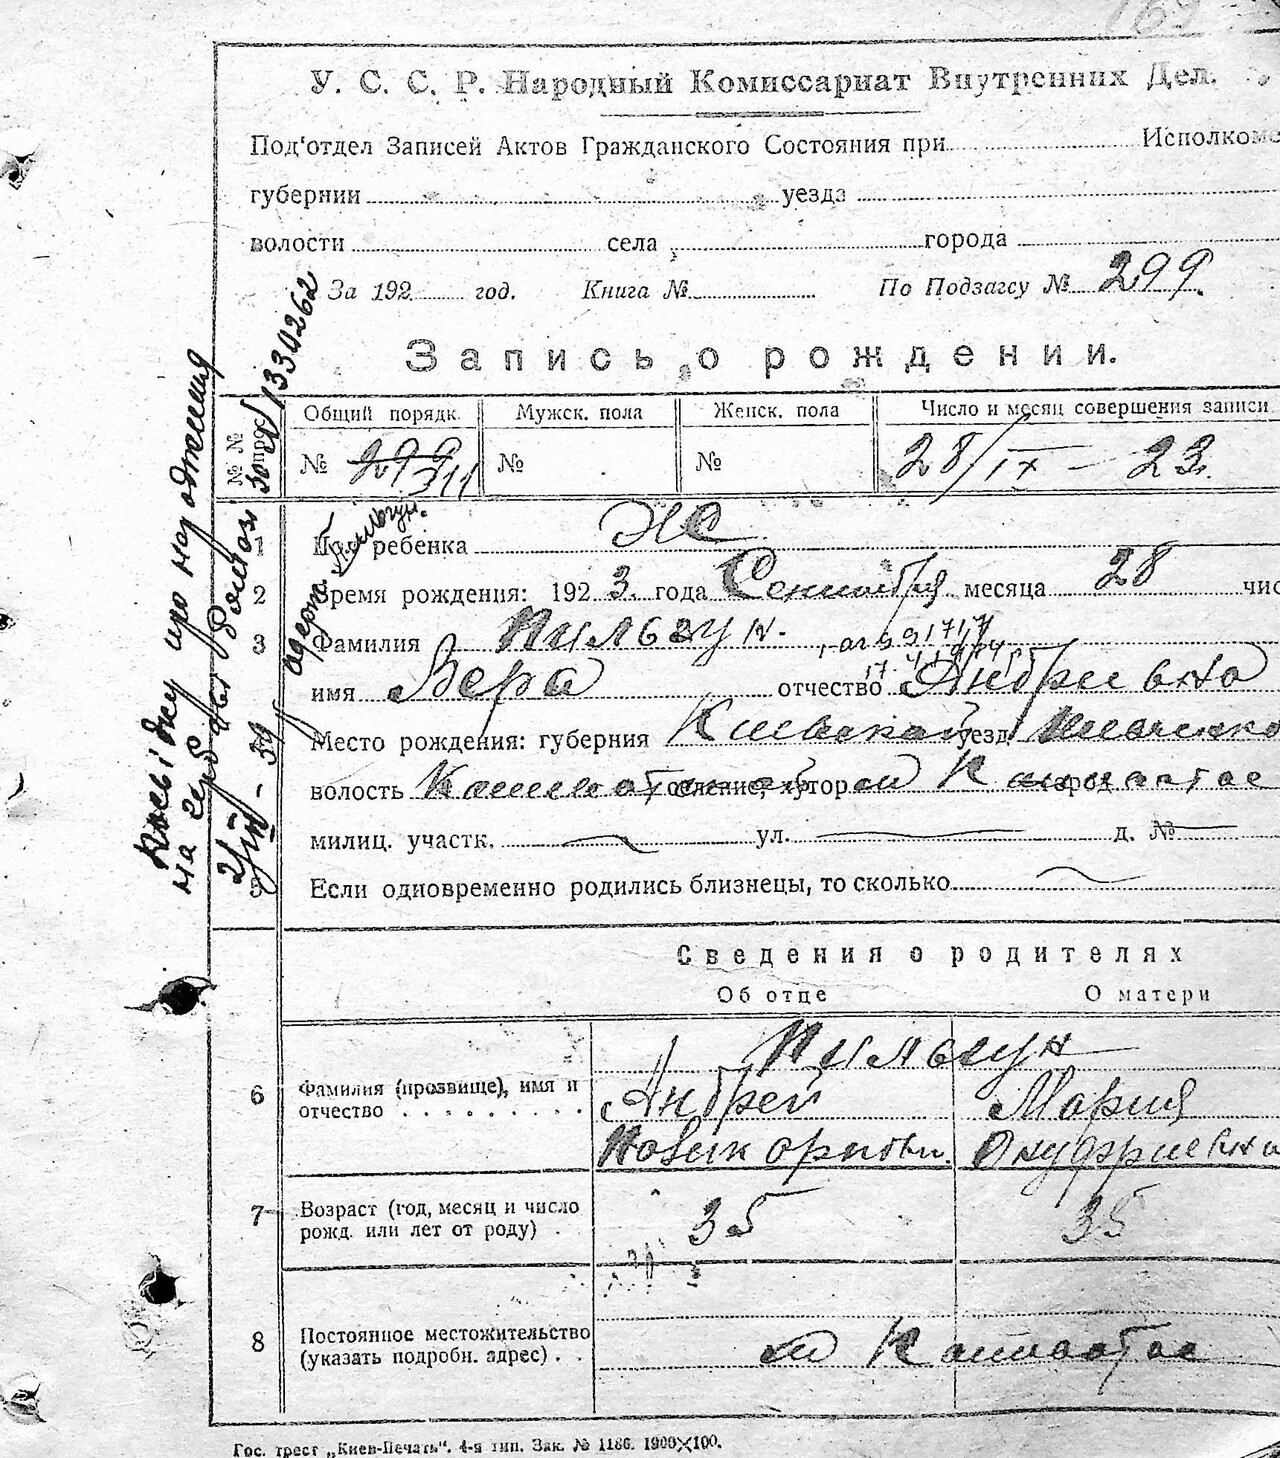 У. С. С. Р. Народный Комиссариат Внутренних Дел.
Под'отдел Записей Актов Гражданского Состояния при Исполкоме
губернии уезда
волости села города
За 192 год. Книга № По Подзагсу № 299.
Запись о рождении.
№ № Общий порядк. Мужск. пола Женск. пола Число и месяц совершения записи
№ 299 311 № № 28/IX – 23.
1 ребенка Ж
2 Время рождения: 192 3. года Сентября месяца 28 чис
3 Фамилия
имя Вера отчество Андриевна
Место рождения: губерния Киевской уезд
волость селение, хутор м
милиц. участк. ул. д. №
5 Если одновременно родились близнецы, то сколько
Сведения о родителях
Об отце О матери
6 Фамилия (прозвище), имя и
отчество
Андрей Мария
Онуфриевна
7 Возраст (год, месяц и число
рожд. или лет от роду) . 35 35
8 Постоянное местожительство
(указать подробн. адрес) . . м
Гос. трест „Киев-Печать“. 4-я тип. Зак. № 1186. 1900×100.
про народження
1330262